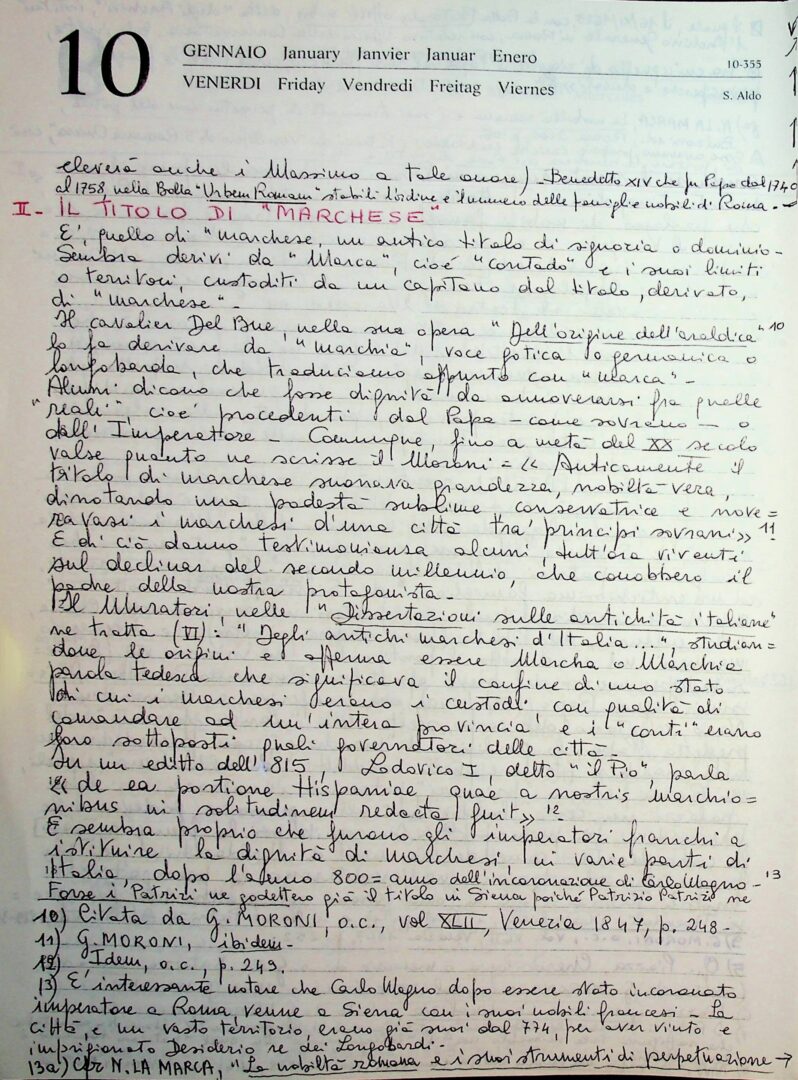 10
GENNAIO January Janvier Januar Enero
10-355
VENERDI Friday Vendredi Freitag Viernes
S. Aldo
eleverà anche i Massimo a tale onore) - Benedetto XIV che fu Papa dal 1740
al 1758, nella Bolla "Urbem Romam" stabilì l'ordine e il numero delle famiglie nobili di Roma. →
II - IL TITOLO DI "MARCHESE"
E', quello di "marchese, un antico titolo di signoria o dominio -
Sembra derivi da "Marca", cioè "contado" e i suoi limiti
o territori, custoditi da un capitano dal titolo, derivato,
di "marchese" -
Il cavalier Del Bue, nella sua opera "Dell'origine dell'araldica" 10
lo fa derivare da "marchia", voce gotica o germanica o
longobarda, che traduciamo appunto con "marca" -
Alcuni dicono che fosse dignità da annoverarsi fra quelle
"reali", cioè procedenti dal Papa - come sovrano - o
dall'Imperatore - Comunque, fino a metà del XX secolo
valse quanto ne scrisse il Moroni = << Anticamente il
titolo di marchese suonava grandezza, nobiltà vera,
dinotando una podestà sublime conservatrice e nove=
ravasi i marchesi d'una città tra' principi sovrani>> 11
E di ciò danno testimonianza alcuni, tutt'ora viventi
sul declinar del secondo millennio, che conobbero il
padre della nostra protagonista -
Il Muratori, nelle "Dissertazioni sulle antichità italiane"
ne tratta (VI): "Degli antichi marchesi d'Italia...", studian=
done le origini e afferma essere Marcha o Marchia
parola tedesca che significava il confine di uno stato
di cui i marchesi erano i custodi con qualità di
comandare ad un'intera provincia e i "conti" erano
loro sottoposti quali governatori delle città -
In un editto dell'815, Lodovico I, detto "il Pio", parla
<< de ea portione Hispaniae, quae a nostris marchio=
nibus in solitudinem redacta fuit>> 12
E sembra proprio che furono gli imperatori franchi a
istituire la dignità di marchesi, in varie parti di
Italia, dopo l'anno 800= anno dell'incoronazione di Carlo Magno - 13
Forse i Patrizi ne godettero già il titolo in Siena poiché Patrizio Patrizi ne
10) Citata da G. MORONI, o.c., vol XLII, Venezia 1847, p. 248 -
11) G. MORONI, ibidem -
12) Idem, o.c., p. 249.
13) E' interessante notare che Carlo Magno dopo essere stato incoronato
imperatore a Roma, venne a Siena con i suoi nobili francesi - La
città, e un vasto territorio, erano già suoi dal 774, per aver vinto e
imprigionato Desiderio re dei Longobardi -
13a) Cfr N. LA MARCA, "La nobiltà romana e i suoi strumenti di perpetuazione →